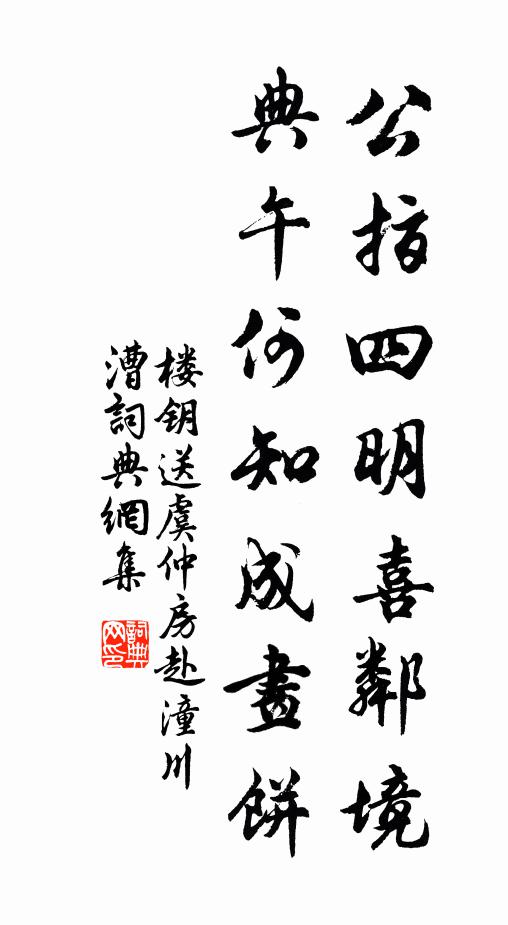 公指四明喜鄰境
典午何知成畫餅
楼钥送虞仲房赴潼川
漕詞典網集
詞典网印